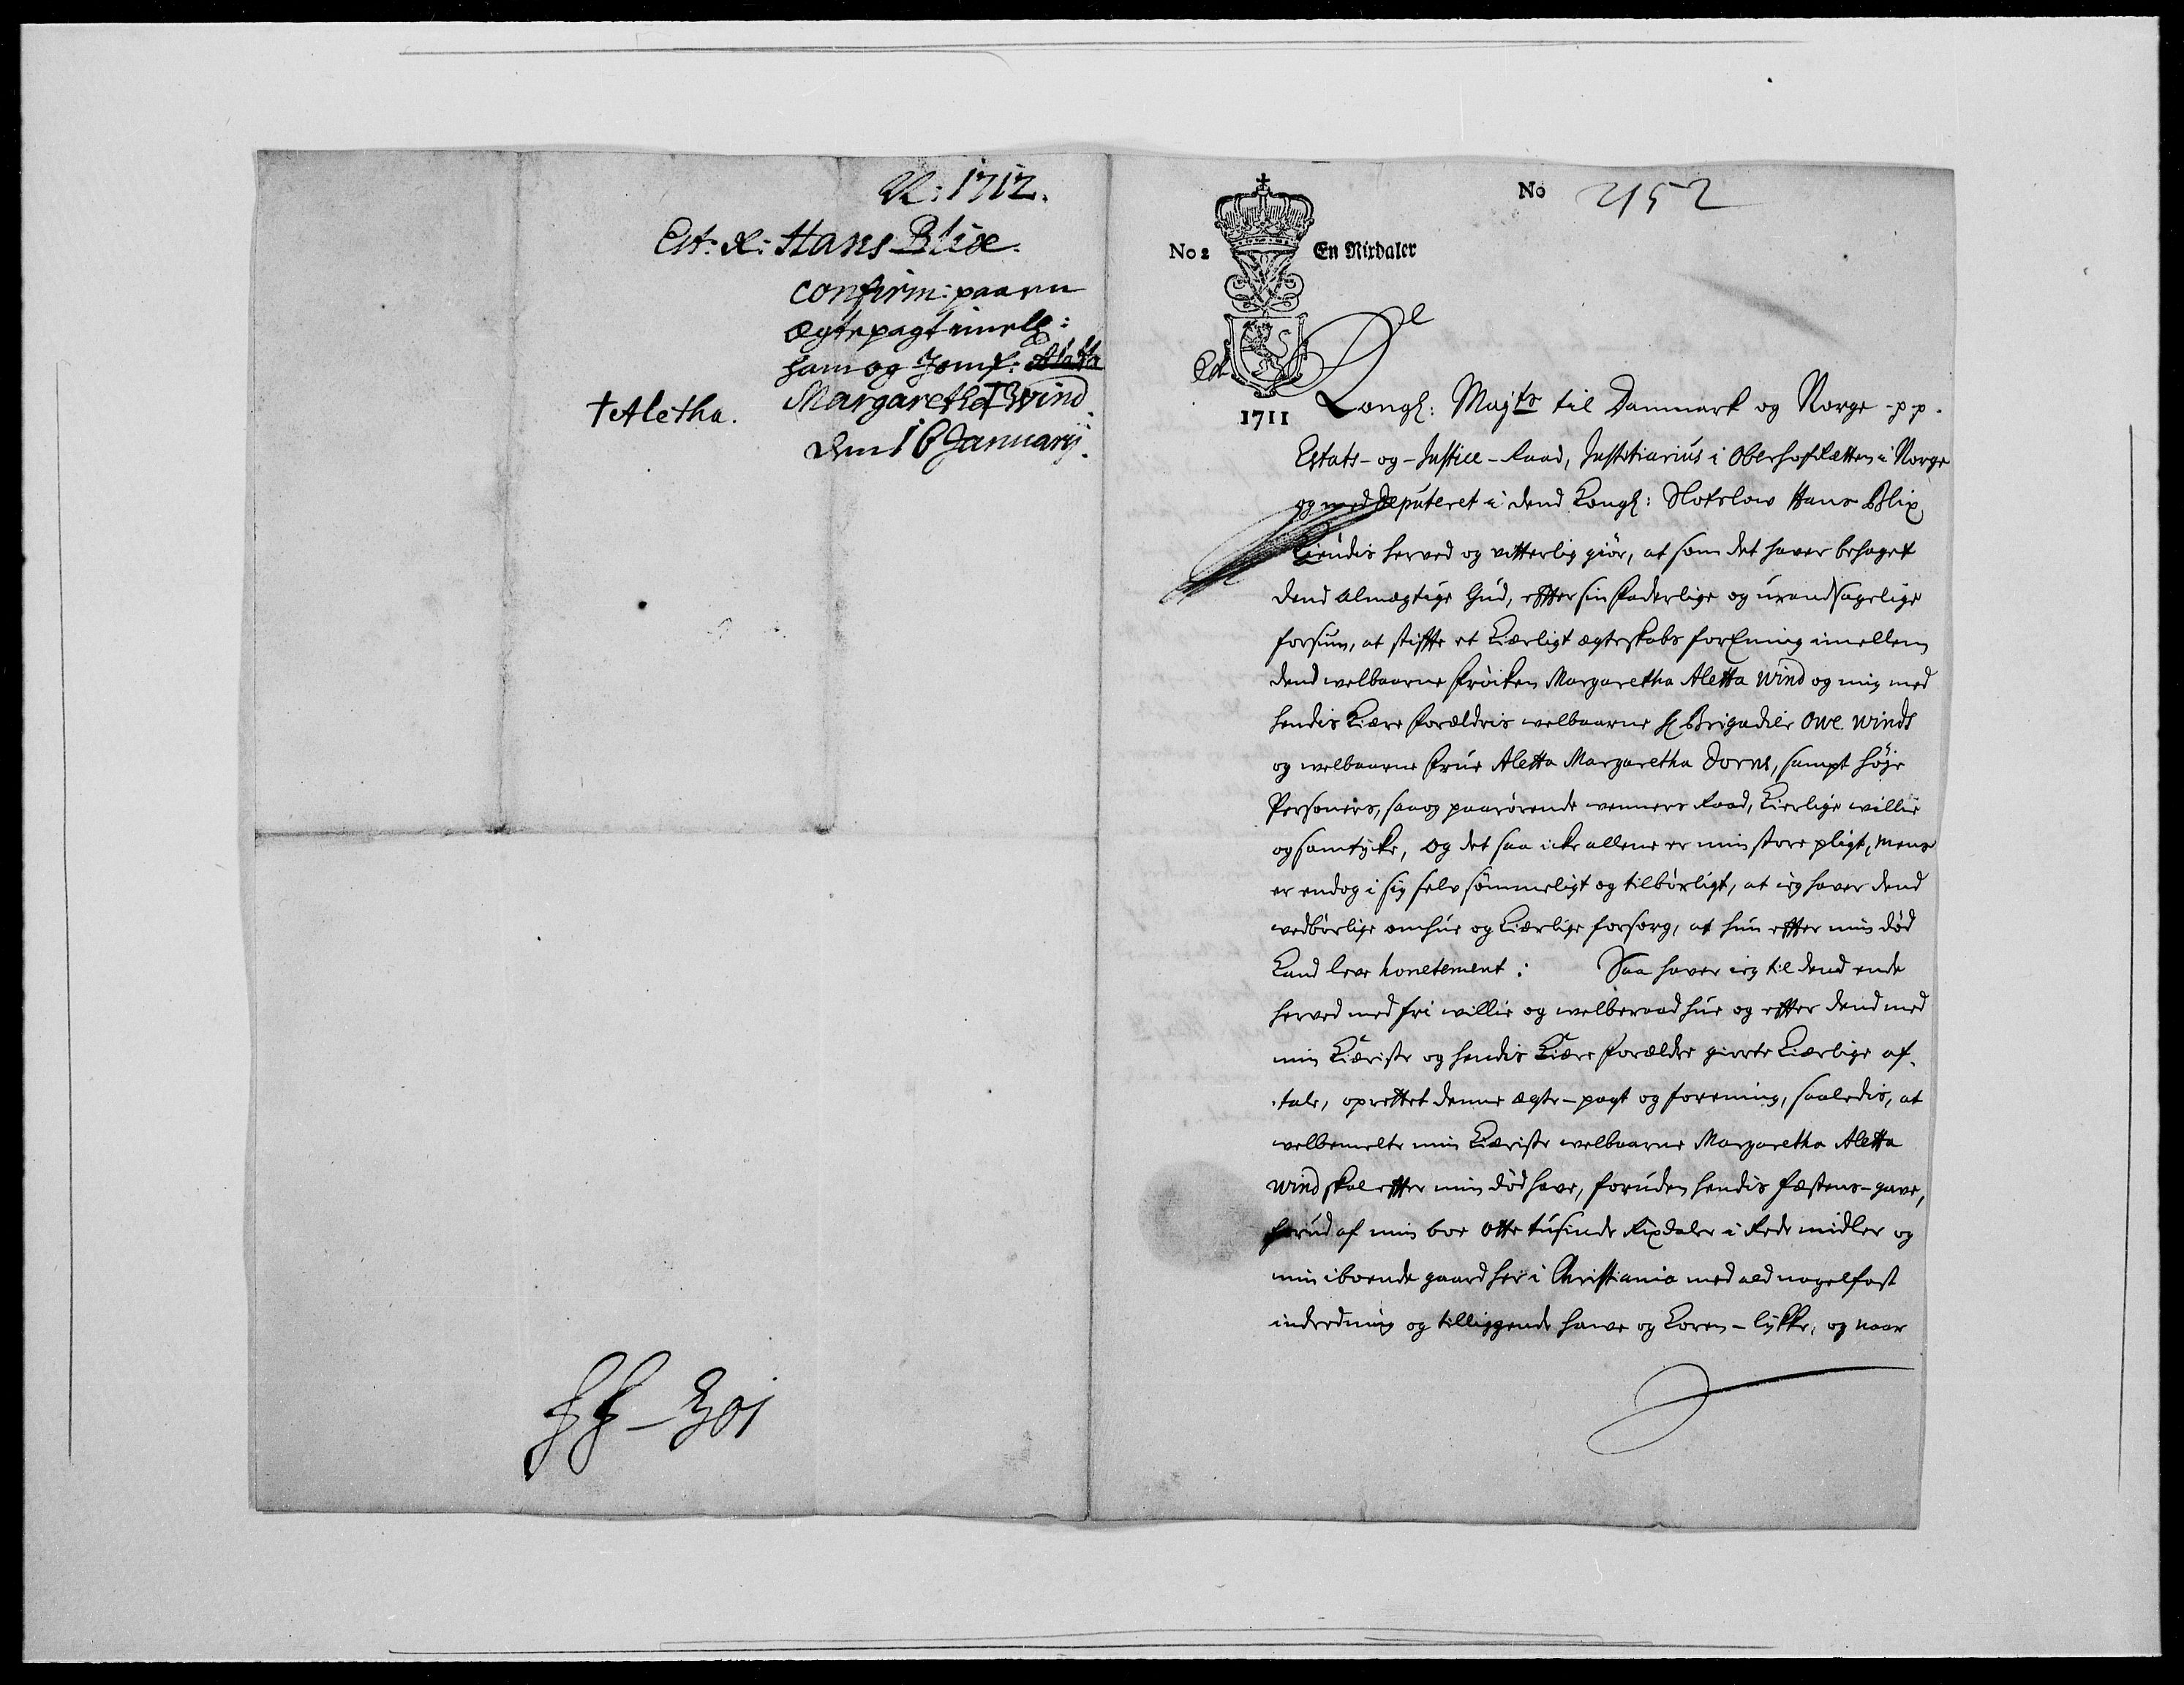 N: 1712.
Et: R: Hans Blixe.
Confirm: paa en
ægtepagt imell:
ham og Jomf: Aletta
Margaretha † Wind
† Aletha.
den 16 Januarij.
HH - 301
No 2152
No 2 En Rixdaler
1711
Kongl: Majts til Danmark og Norge - pp.
Estats- og - Justice - Raad, Justitiarius i Oberhofrætten i Norge
og med deputeret i dend Kongl: Slotslow Hans Blix
Kiendis herved og vitterlig giör, at som det haver behaget
dend Almægtige Gud, effter sin faderlige og urandsagelige
forsiun, at stiffte et Kiærligt ægteskabs forEning imellem
dend welbaarne fröiken Margaretha Aletta Wind og mig med
hendis Kiære forældris welbaarne H Brigadier Owe Winds
og welbaarne frue Aletta Margaretha Dorns, sampt höje
Personers, saa og paarörende venners Raad, Kierlige willie
og samtÿcke, og det saa icke allene er min store pligt, mens
er endog i sig selv sömmeligt og tilbörligt, at ieg haver dend
vedbörlige omhue og Kiærlige forsorg, at hun effter min död
Kand leve honetement: Saa haver ieg til dend ende
herved med fri willie og welberaad hue og effter dend med
min Kiæriste og hendis Kiære forældre giorte Kiærlige af-
tale, oprettet denne ægte-pagt og forening, saaledis, at
welbemelte min Kiæriste welbaarne Margaretha Aletta
Wind skal effter min död have, foruden hendis fæstens-gave,
forud af min boe Otte tusinde Rixdaler i Rede midler og
min iboende gaard her i Christiania med ald nagelfast
indredning og tilliggende have og Koren-lÿkke, og naar